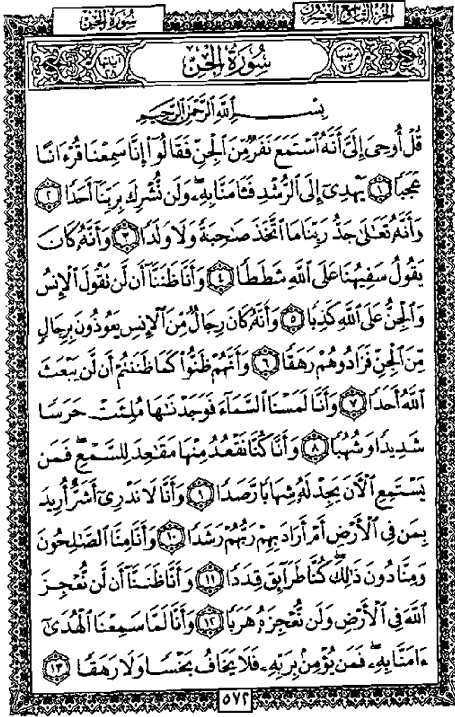 سُورَةُ الجِنِّ الجُزْءُ التَّاسِعُ وَالعِشْرُونَ
آياتها ٢٨ سُورَةُ الجِنِّ ترتيبها ٧٢
بِسْمِ اللَّهِ الرَّحْمَٰنِ الرَّحِيمِ
قُلْ أُوحِىَ إِلَىَّ أَنَّهُ ٱسْتَمَعَ نَفَرٌ مِّنَ ٱلْجِنِّ فَقَالُوٓا۟ إِنَّا سَمِعْنَا قُرْءَانًا
عَجَبًا ١ يَهْدِىٓ إِلَى ٱلرُّشْدِ فَـَٔامَنَّا بِهِۦ وَلَن نُّشْرِكَ بِرَبِّنَآ أَحَدًا ٢
وَأَنَّهُۥ تَعَٰلَىٰ جَدُّ رَبِّنَا مَا ٱتَّخَذَ صَٰحِبَةً وَلَا وَلَدًا ٣ وَأَنَّهُۥ كَانَ
يَقُولُ سَفِيهُنَا عَلَى ٱللَّهِ شَطَطًا ٤ وَأَنَّا ظَنَنَّآ أَن لَّن تَقُولَ ٱلْإِنسُ
وَٱلْجِنُّ عَلَى ٱللَّهِ كَذِبًا ٥ وَأَنَّهُۥ كَانَ رِجَالٌ مِّنَ ٱلْإِنسِ يَعُوذُونَ بِرِجَالٍ
مِّنَ ٱلْجِنِّ فَزَادُوهُمْ رَهَقًا ٦ وَأَنَّهُمْ ظَنُّوا۟ كَمَا ظَنَنتُمْ أَن لَّن يَبْعَثَ
ٱللَّهُ أَحَدًا ٧ وَأَنَّا لَمَسْنَا ٱلسَّمَآءَ فَوَجَدْنَٰهَا مُلِئَتْ حَرَسًا
شَدِيدًا وَشُهُبًا ٨ وَأَنَّا كُنَّا نَقْعُدُ مِنْهَا مَقَٰعِدَ لِلسَّمْعِ فَمَن
يَسْتَمِعِ ٱلْءَانَ يَجِدْ لَهُۥ شِهَابًا رَّصَدًا ٩ وَأَنَّا لَا نَدْرِىٓ أَشَرٌّ أُرِيدَ
بِمَن فِى ٱلْأَرْضِ أَمْ أَرَادَ بِهِمْ رَبُّهُمْ رَشَدًا ١٠ وَأَنَّا مِنَّا ٱلصَّٰلِحُونَ
وَمِنَّا دُونَ ذَٰلِكَ كُنَّا طَرَآئِقَ قِدَدًا ١١ وَأَنَّا ظَنَنَّآ أَن لَّن نُّعْجِزَ
ٱللَّهَ فِى ٱلْأَرْضِ وَلَن نُّعْجِزَهُۥ هَرَبًا ١٢ وَأَنَّا لَمَّا سَمِعْنَا ٱلْهُدَىٰٓ
ءَامَنَّا بِهِۦ فَمَن يُؤْمِنۢ بِرَبِّهِۦ فَلَا يَخَافُ بَخْسًا وَلَا رَهَقًا ١٣
٥٧٢